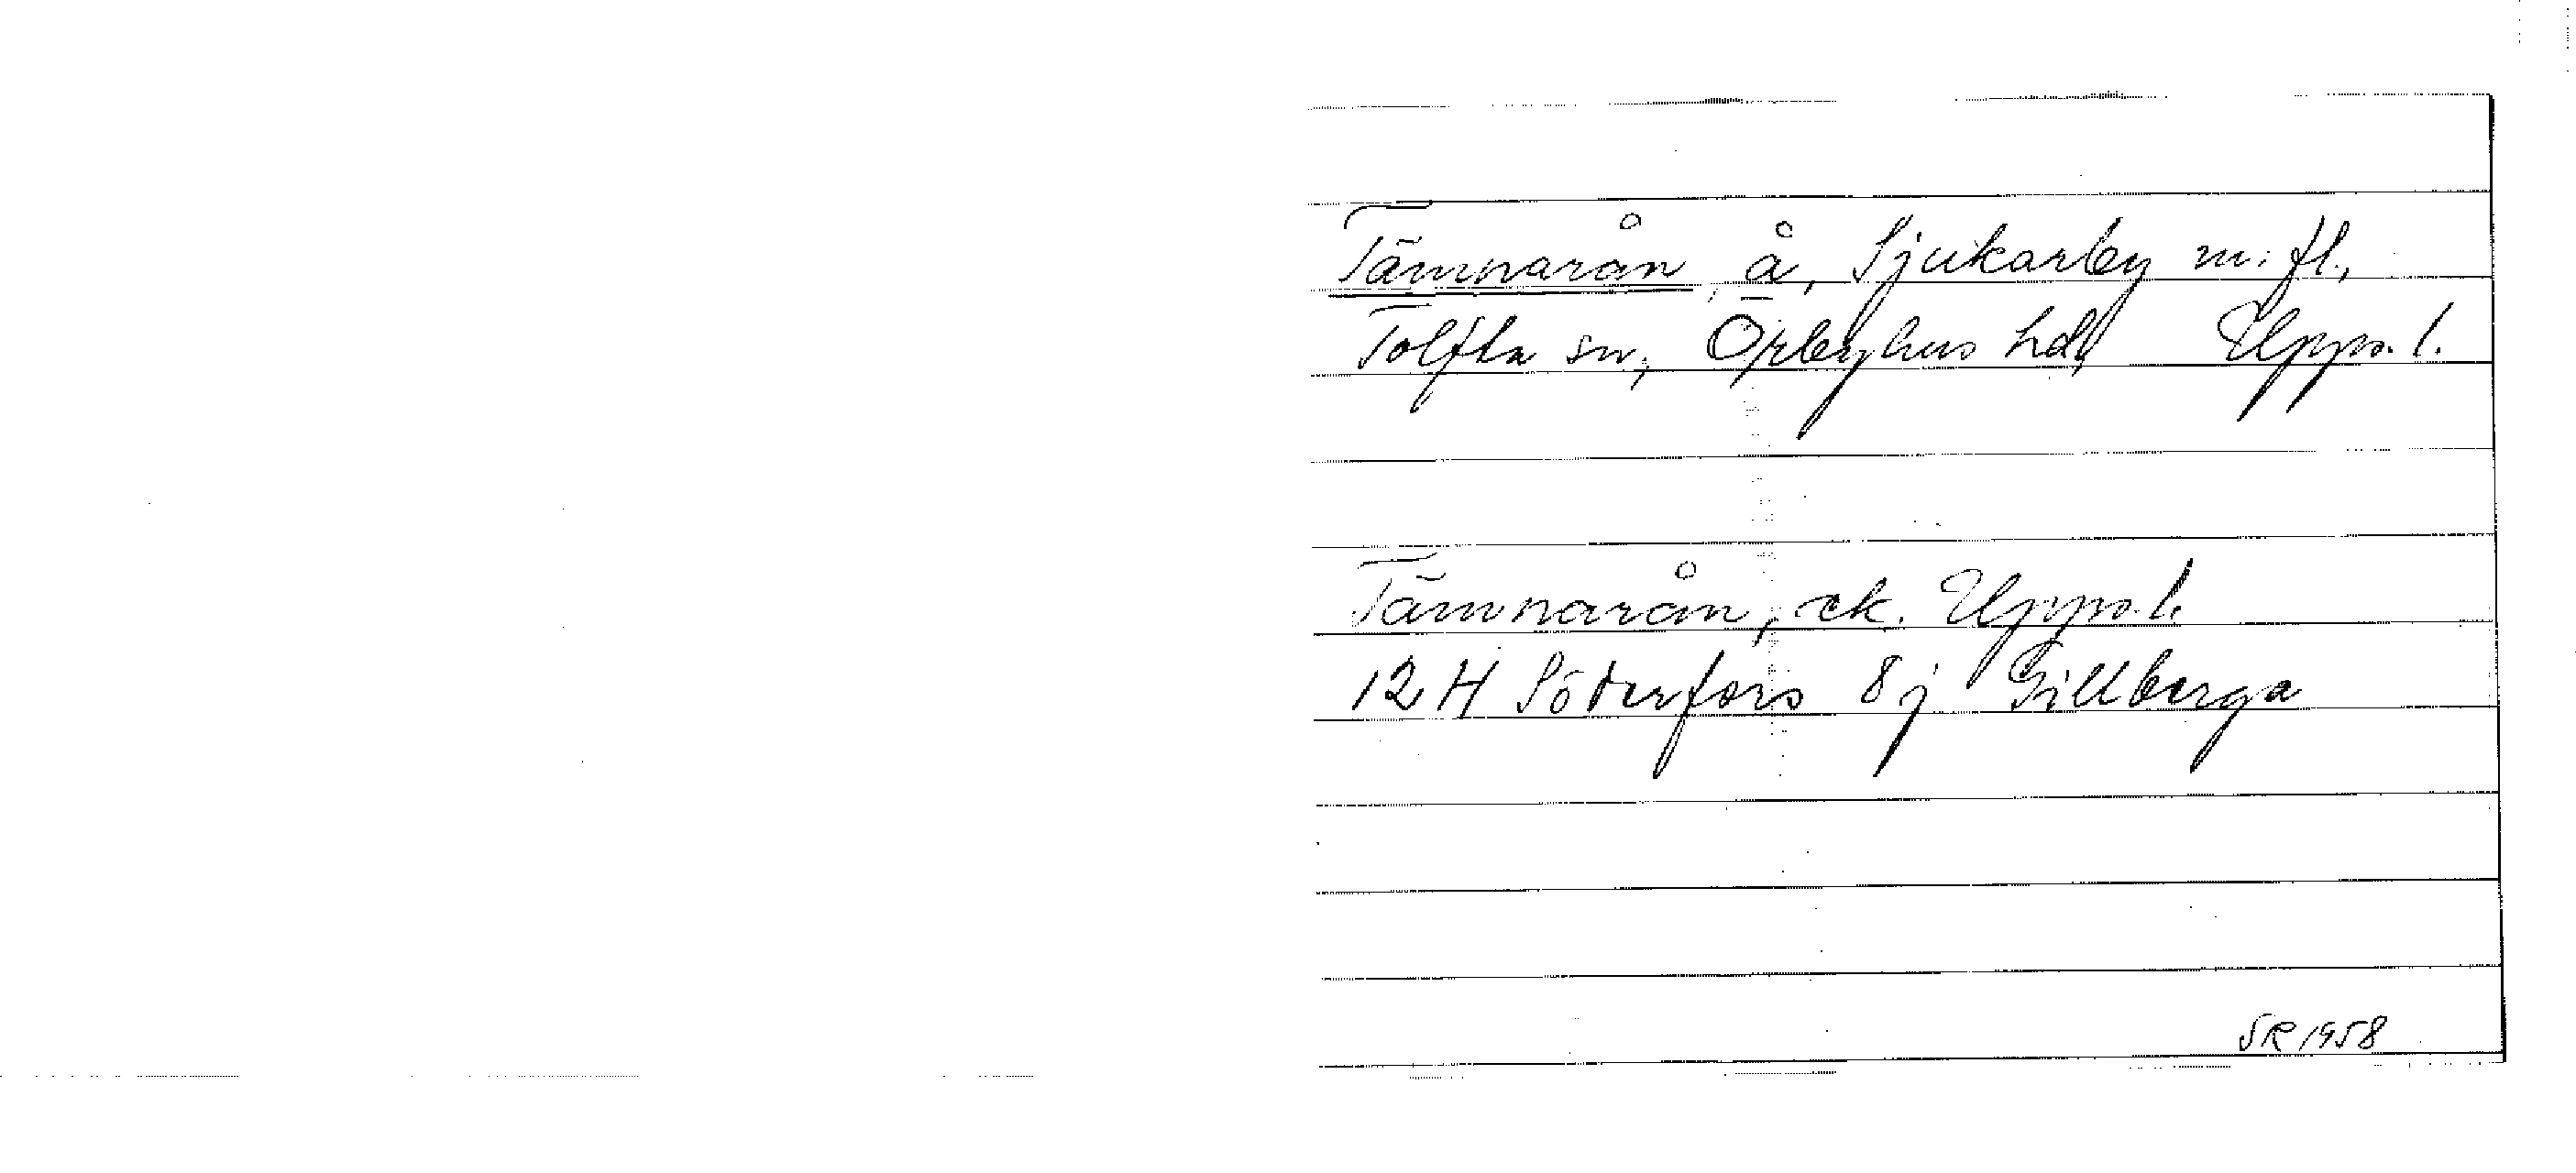 Tämnarån, å, Sjukarby m. fl.,
Tolfta sn, Örbyhus hd, Upps. l.
Tämnarån, ek. Upps. l.
12 H Söderfors 8 j Gillberga
SR 1958